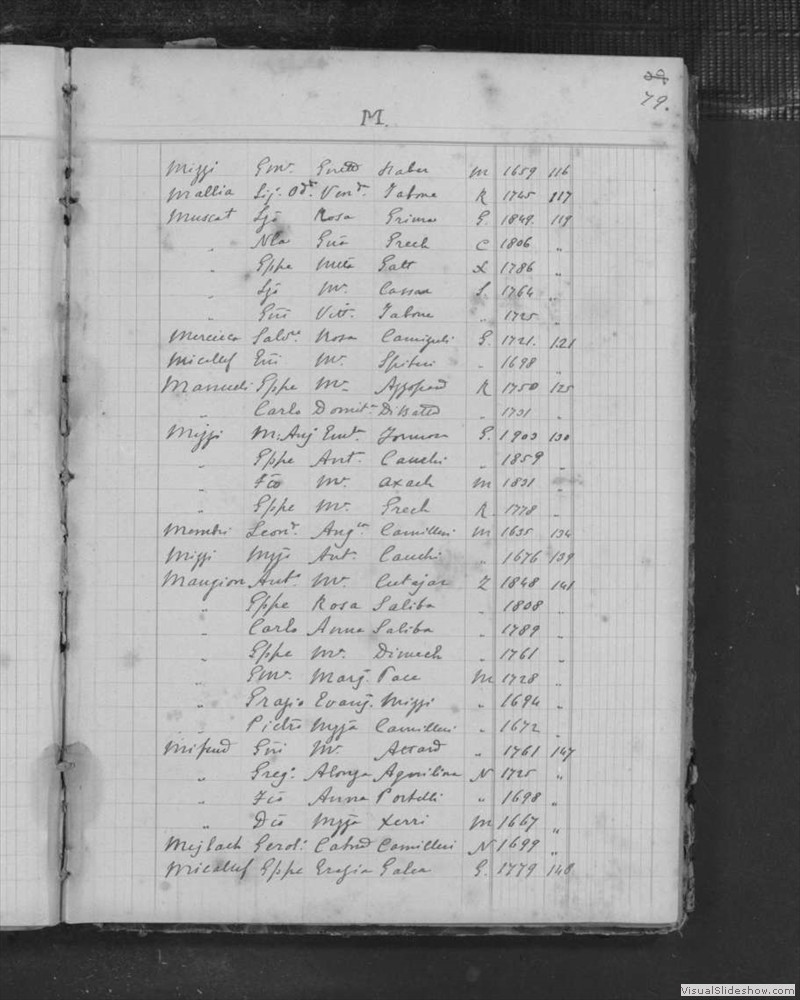 79.
M.
Mizzi Gmr. Haber M 1659 116
Mallia Vinc. Tabone R 1745 117
Muscat Rosa Grima G. 1849. 119
" Nla Gña Grech C 1806 "
" Gppe Mtta Gatt X 1786 "
" Mr. Cassar S. 1764 "
" Gñi Vitt. Tabone " 1725 "
Mercieca Salvr. Rosa Camiguli G. 1721. 121
Micallef Gñi Mr. Spiteri " 1698 "
Manueli Gppe Mr. Azzopard R 1750 125
" Carlo Domit. DiBatt " 1731 "
Mizzi M. Ang. G. 1903 130
" Gppe Ant. Cauchi " 1859 "
" Fco Mr. Axach M 1831 "
" Gppe Mr. Grech R 1778 "
Leonr. Camilleri M 1635 134
Mizzi Mzza Ant. Cauchi " 1676 139
Mangion Ant. Mr. Cutajar Z 1848 141
" Gppe Rosa Saliba " 1808 "
" Carlo Anna Saliba " 1789 "
" Gppe Mr. Dimech " 1761 "
" Gmr. Marg. Pace M 1728 "
" Grazio Evang. Mizzi " 1694 "
" Pietro Mzza Camilleri " 1672 "
Mifsud Gñi Mr. Accard " 1761 147
" Greg. Alonza Aquilina N 1725 "
" Fco Anna Portelli " 1698 "
" Dco Mzza Xerri M 1667 "
Mejlach Gerol. Camilleri N 1699 "
Micallef Gppe Grazia Galea G. 1779 148
VisualSlideshow.com